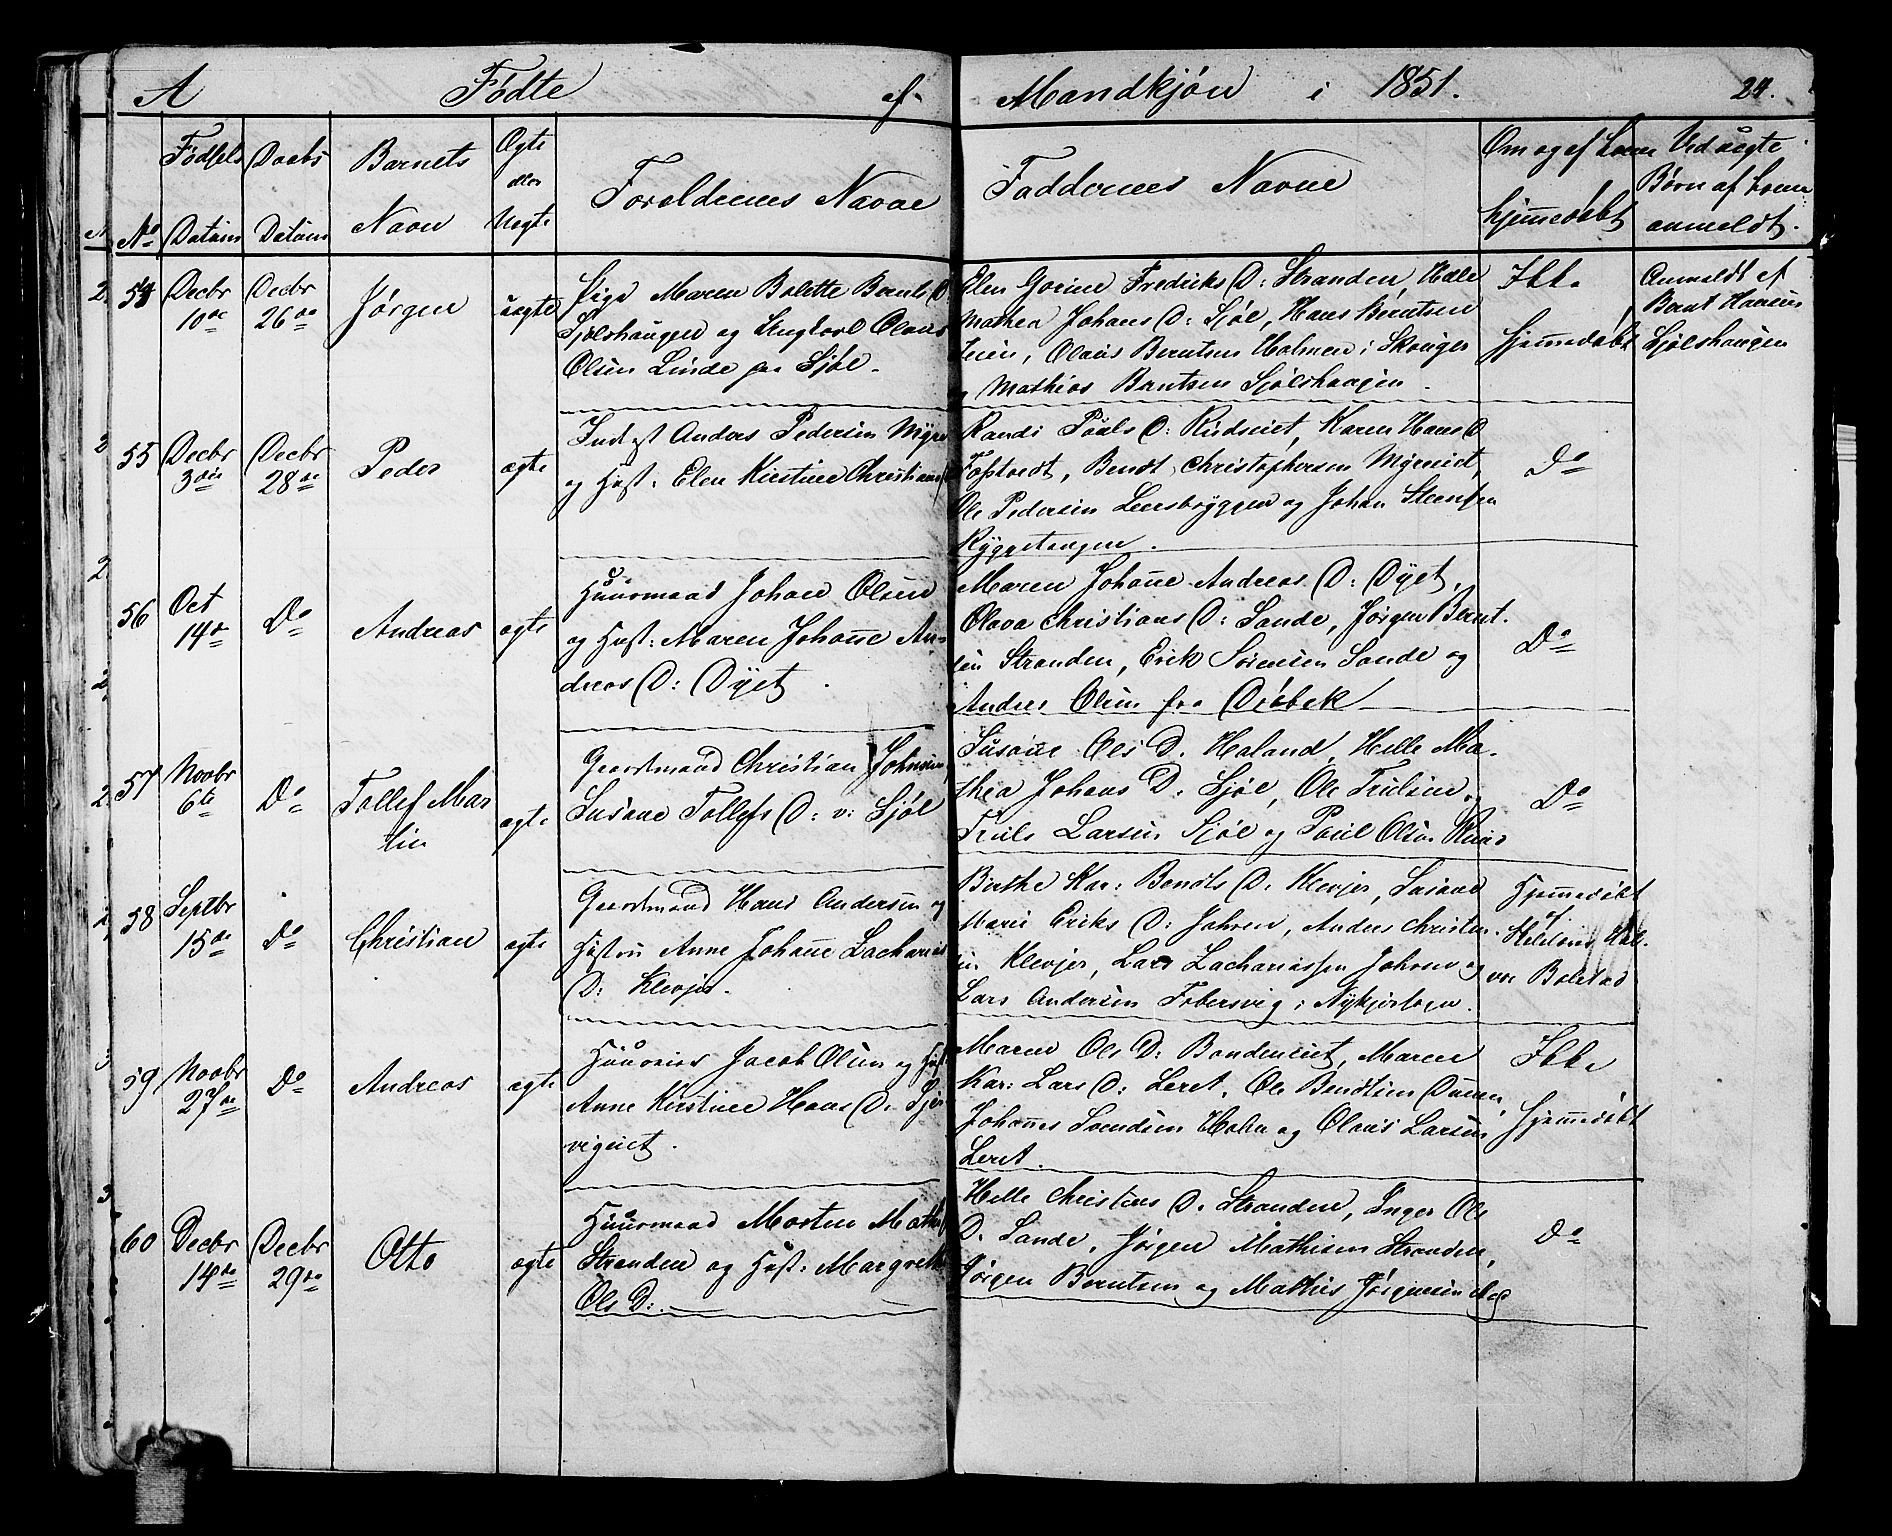 A Fødte af Mandkjøn i 1851. 24.
No
Fødsels Datum
Daabs Datum
Barnets Navn
Ægte eller Uægte
Foreldrenes Navne
Faddernes Navne
Om og af hvem hjemmedøbt
Ved uægte Børn af hvem anmeldt.
54 Decbr 10de
Decbr 26de
Jørgen
uægte
Pige Maren Bolette Bernts D
Sjølshaugen og Ungkarl Olaus
Olsen Linde paa Sjøl.
Elen Gorine Fredriks D: Stranden, Helle
Mathea Johans D: Sjøl, Hans Berntsen
Olaus Berntsen Holmen i Skouger
og Mathias Berntsen Sjølshaugen.
Ikke
hjemmedøbt
Anmeldt af
Bernt Hansen
Sjølshaugen
55 Decbr 3die
Decbr 28de
Peder
ægte
Inds Anders Pedersen
og Hust: Elen Kirstine Christians
Randi Pouls D: Rudseiet, Karen Hans D
Toftvedt, Bendt Christophersen Myreeiet,
Ole Pedersen Leersbryggen og Johan Steensen
Ryggetangen.
Do
56 Oct 14de
Do
Andreas
ægte
Huusmand Johan Olsen
og Hust: Maren Johanne An-
dreas D: Dyet.
Maren Johanne Andreas D: Dyet,
Olava Christians D: Sande, Jørgen Bernt-
sen Stranden, Erik Sørensen Sande og
Anders Olsen fra Drøbak
Do
57 Novbr 6te
Do
Tollef Mar
tin
ægte
Gaardmand Christian Johnsen,
Susane Tollefs D: v: Sjøl
Susanne Ols D. Haland, Helle Ma-
thea Johans D. Sjøl, Ole Trulsen,
Truls Larsen Sjøl og Poul Olsen
Do
58 Septbr 15de
Do
Christian
ægte
Gaardmand Hans Andersen og
Hustru Anne Johanne Zacharias
D: Klevjer.
Berthe Kar: Bendts D. Klevjer, Susane
Marie Eriks D: Jahren, Anders Christen-
sen Klevjer, Lars Zachariassen Jahren og
Lars Andersen Tobersvig i Nykjerlogen.
Hjemmedøbt
af
vor Bolstad
59 Novbr 27de
Do
Andreas
ægte
Jacob Olsen og Hust
Anne Kirstine Hans D.
vigeiet.
Maren Ols D: Bondeneiet, Maren
Kar: Lars D: Leret, Ole Bendtsen
Johannes Svendsen Holm og Olaus Larsen
Leret.
Ikke
hjemmedøbt
60 Decbr 14de
Decbr 29de
Otto
ægte
Huusmand Morten Math
Stranden og Hust: Margrethe
Ols D:
Helle Christians D. Stranden, Inger Ols
D. Sande, Jørgen Mathisen Stranden,
Jørgen Berntsen og Mathis Jørgensen
Do